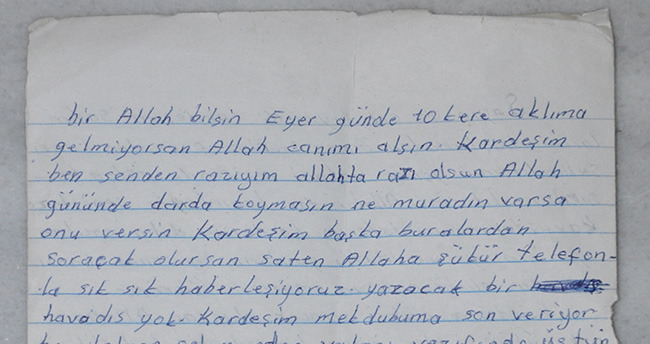 bir Allah bilsin Eyer günde 10 kere aklıma
gelmiyorsan Allah canımı alsın. Kardeşim
ben senden razıyım allahta razı olsun Allah
gününde darda koymasın ne muradın varsa
onu versin Kardeşim başka buralardan
soraçak olursan saten Allaha şükür telefon-
la sık sık haberleşiyoruz. yazacak bir
havadis yok. Kardeşim mekdubuma son veriyor